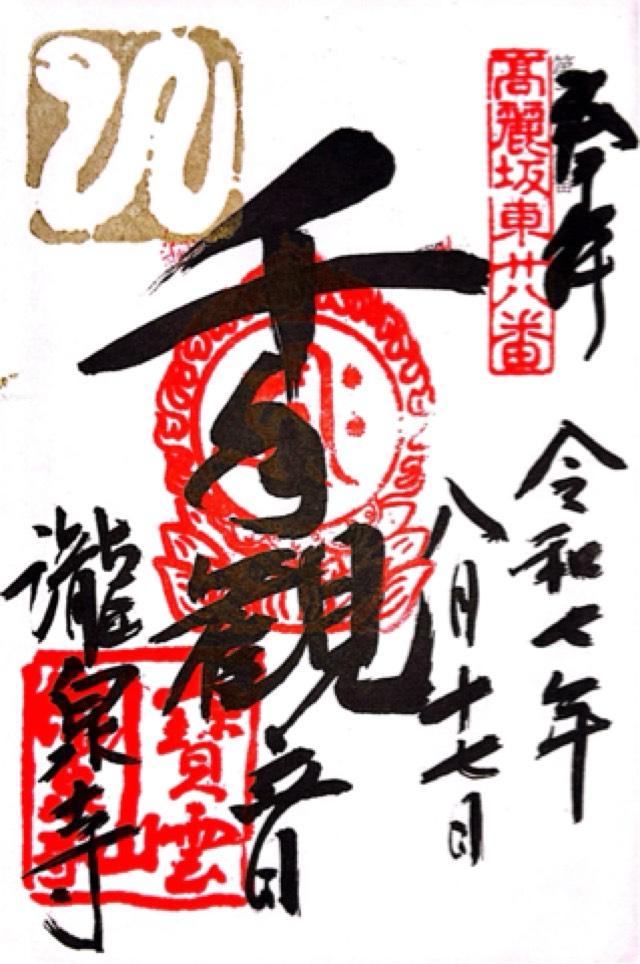 高麗坂東廿八番
令和七年
八月十七日
千手觀音
瀧泉寺
寶雲山